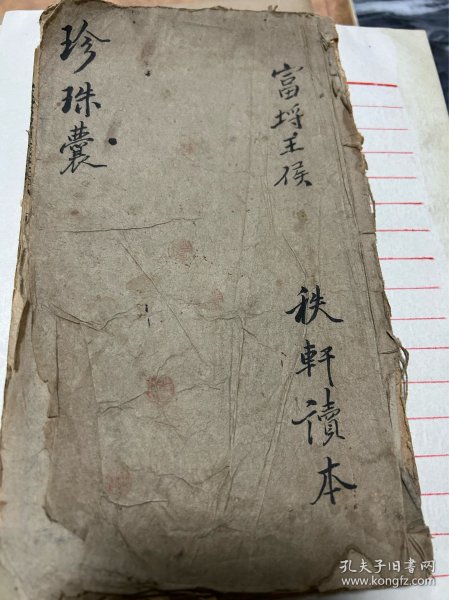 富埒王侯
秩軒讀本
珍珠囊
孔夫子旧书网
www.kongfz.com